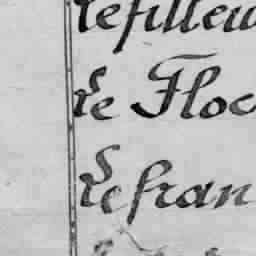 Lefilleu
Le Floc
Lefran